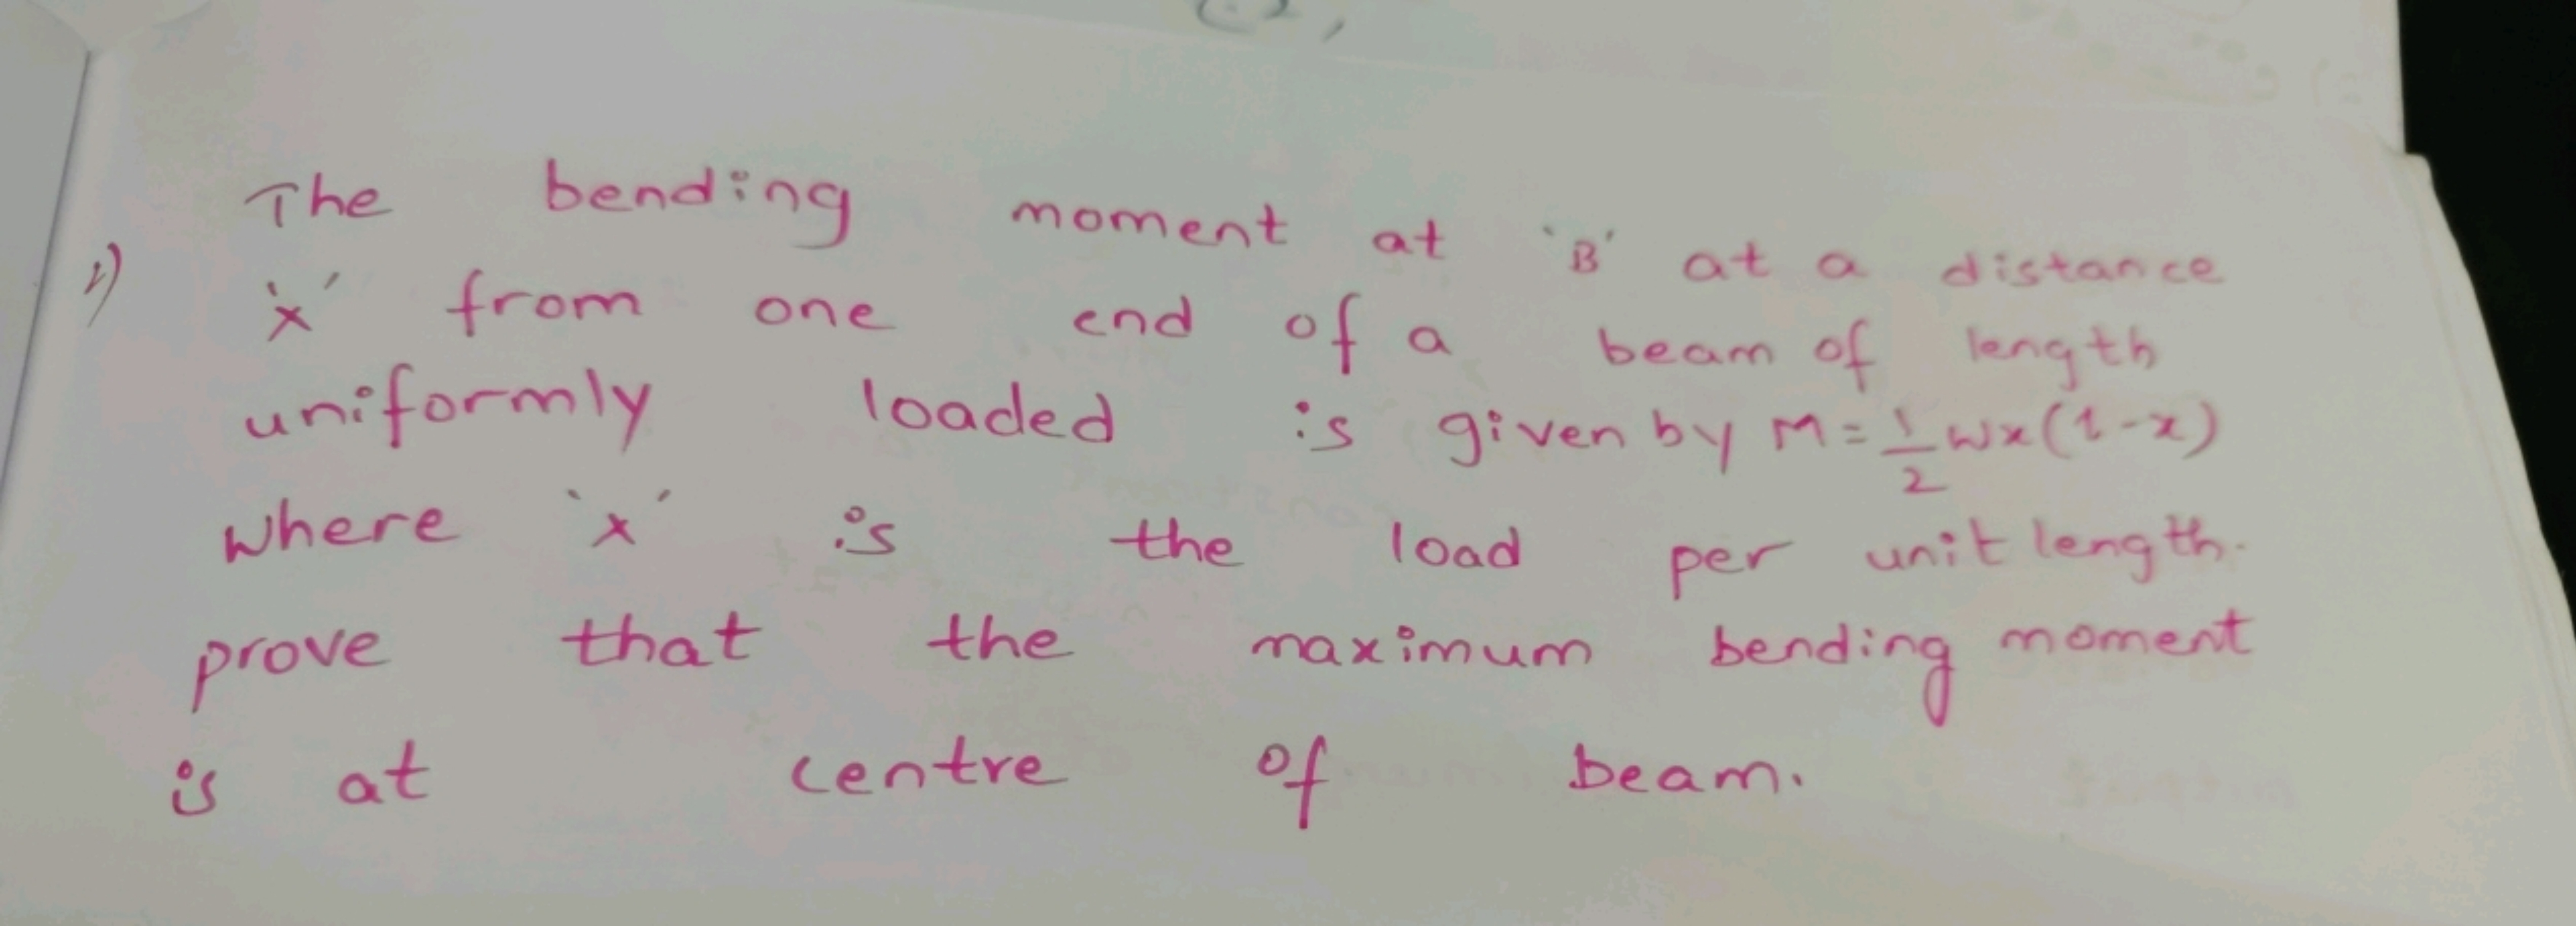 The bending moment at 'B' at a distance
1) 'x' from one end of a beam of length
uniformly loaded is given by M = 1/2 wx(1-x)
where 'x' is the load per unit length.
prove that the maximum bending moment
is at centre of beam.